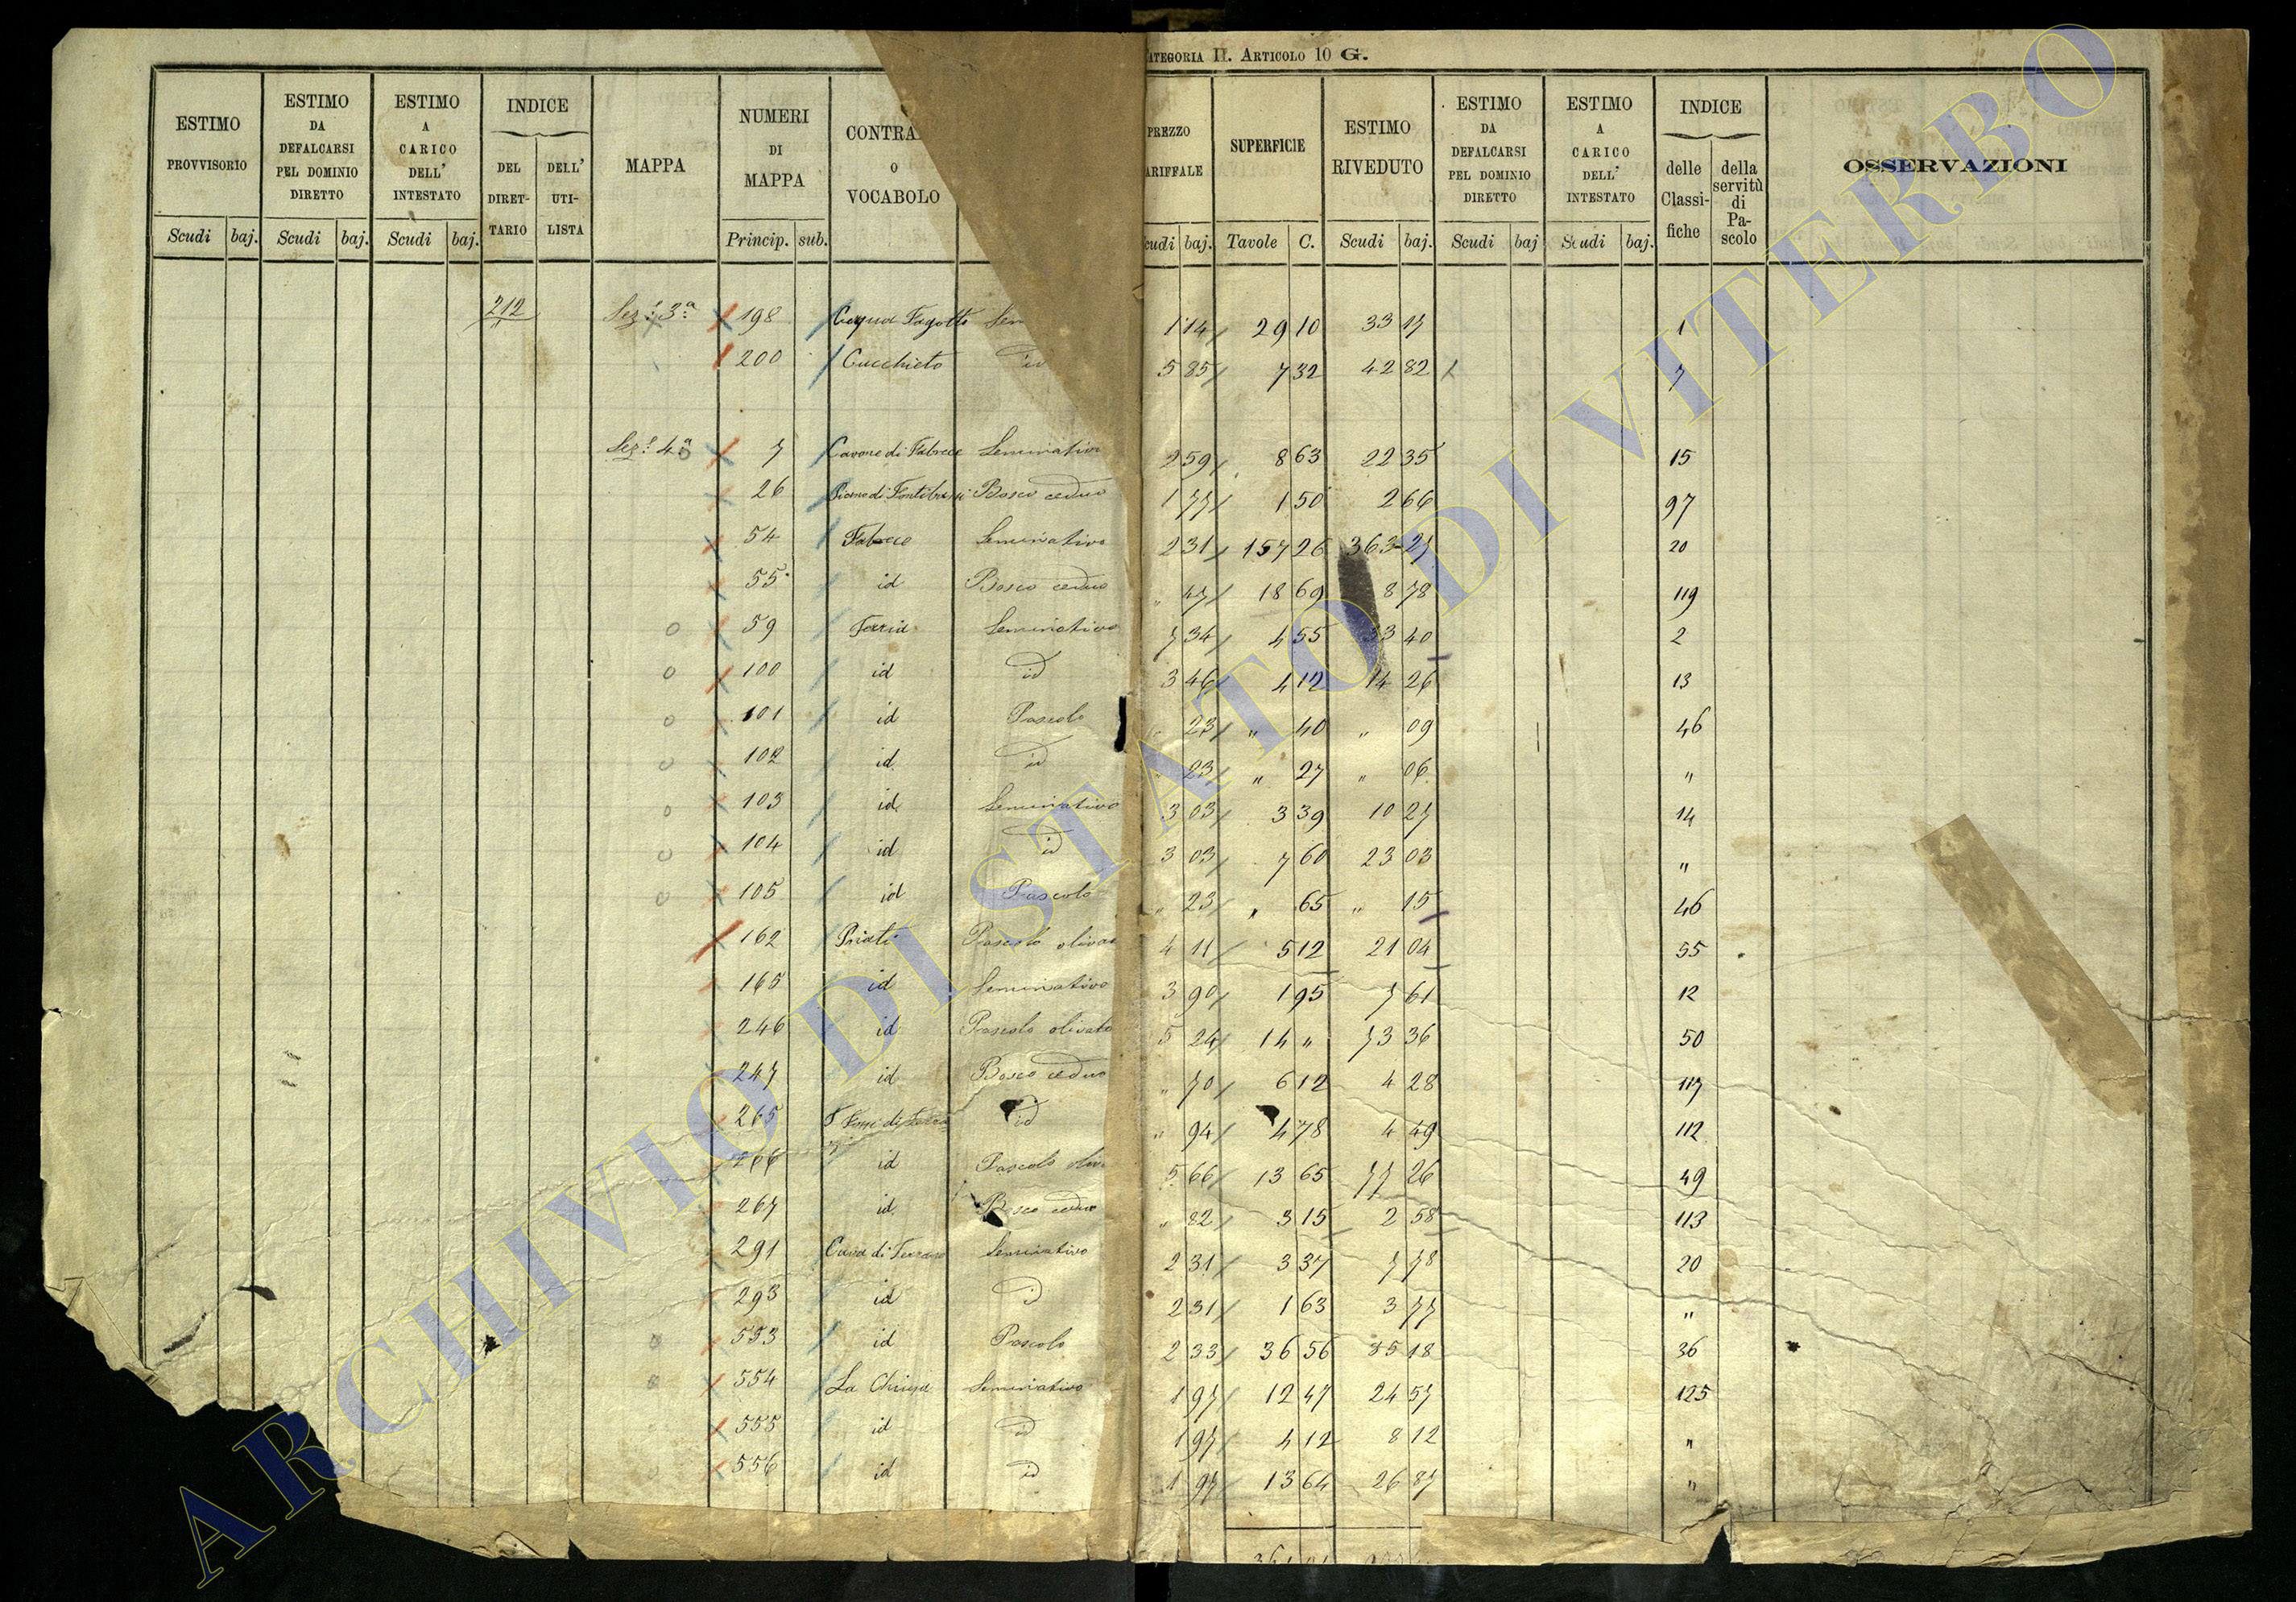 CATEGORIA II. ARTICOLO 10 G.
ESTIMO PROVVISORIO Scudi baj.
ESTIMO DA DEFALCARSI PEL DOMINIO DIRETTO Scudi baj.
ESTIMO A CARICO DELL' INTESTATO Scudi baj.
INDICE DEL DIRET-TARIO DELL' UTI-LISTA
MAPPA
NUMERI DI MAPPA Princip. sub.
CONTRA
O
VOCABOLO
PREZZO
ARIFFALE cudi baj.
SUPERFICIE Tavole C.
ESTIMO RIVEDUTO Scudi baj.
ESTIMO DA DEFALCARSI PEL DOMINIO DIRETTO Scudi baj
ESTIMO A CARICO DELL' INTESTATO Scudi baj.
INDICE delle Classi-fiche della servitù di Pa-scolo
OSSERVAZIONI
212 Sez. 3ª 198 Fagotto Sem 1 14 29 10 33 17 1
200 Cucchieto id 5 85 7 32 42 82 7
Sez. 4ª 7 Cavone di Fabrece Seminativo 2 59 8 63 22 35 15
26 Piano di Bosco ceduo 1 77 1 50 2 66 97
54 Fabrece Seminativo 2 31 157 26 363 27 20
55 id Bosco ceduo " 47 18 69 8 78 119
59 Seminativo 7 34 4 55 33 40 2
100 id id 3 46 4 12 14 26 13
101 id Pascolo " 23 " 40 " 09 46
102 id id " 23 " 27 " 06 "
103 id Seminativo 3 03 3 39 10 27 14
104 id id 3 03 7 60 23 03 "
105 id Pascolo " 23 " 65 " 15 46
162 Priati Pascolo olivato 4 11 5 12 21 04 55
165 id Seminativo 3 90 1 95 7 61 12
246 id Pascolo olivato 5 24 14 " 73 36 50
247 id Bosco ceduo " 70 6 12 4 28 117
265 id " 94 4 78 4 49 112
266 id Pascolo oliv 5 66 13 65 77 26 49
267 id Bosco ceduo " 82 3 15 2 58 113
291 Seminativo 2 31 3 37 7 78 20
293 id id 2 31 1 63 3 77 "
553 id Pascolo 2 33 36 56 85 18 36
554 La Chiusa Seminativo 1 97 12 47 24 57 125
555 id id 1 97 4 12 8 12 "
556 id id 1 97 13 64 26 87 "
ARCHIVIO DI STATO DI VITERBO